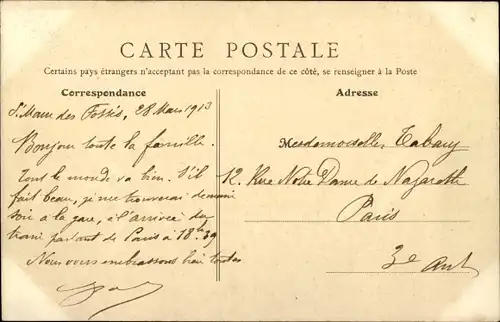 CARTE POSTALE
Certains pays étrangers n'acceptant pas la correspondance de ce côté, se renseigner à la Poste
Correspondance
St Maur des Fossés, 28 Mars 1913
Bonjour toute la famille.
Tout le monde va bien. S'il
fait beau, je me trouverai demain
soir à la gare, à l'arrivée du
train partant de Paris à 18h39
Nous vous embrassons bien toutes
Adresse
Mesdemoiselles Tabary
12, Rue Notre Dame de Nazareth
Paris
3e Arrt